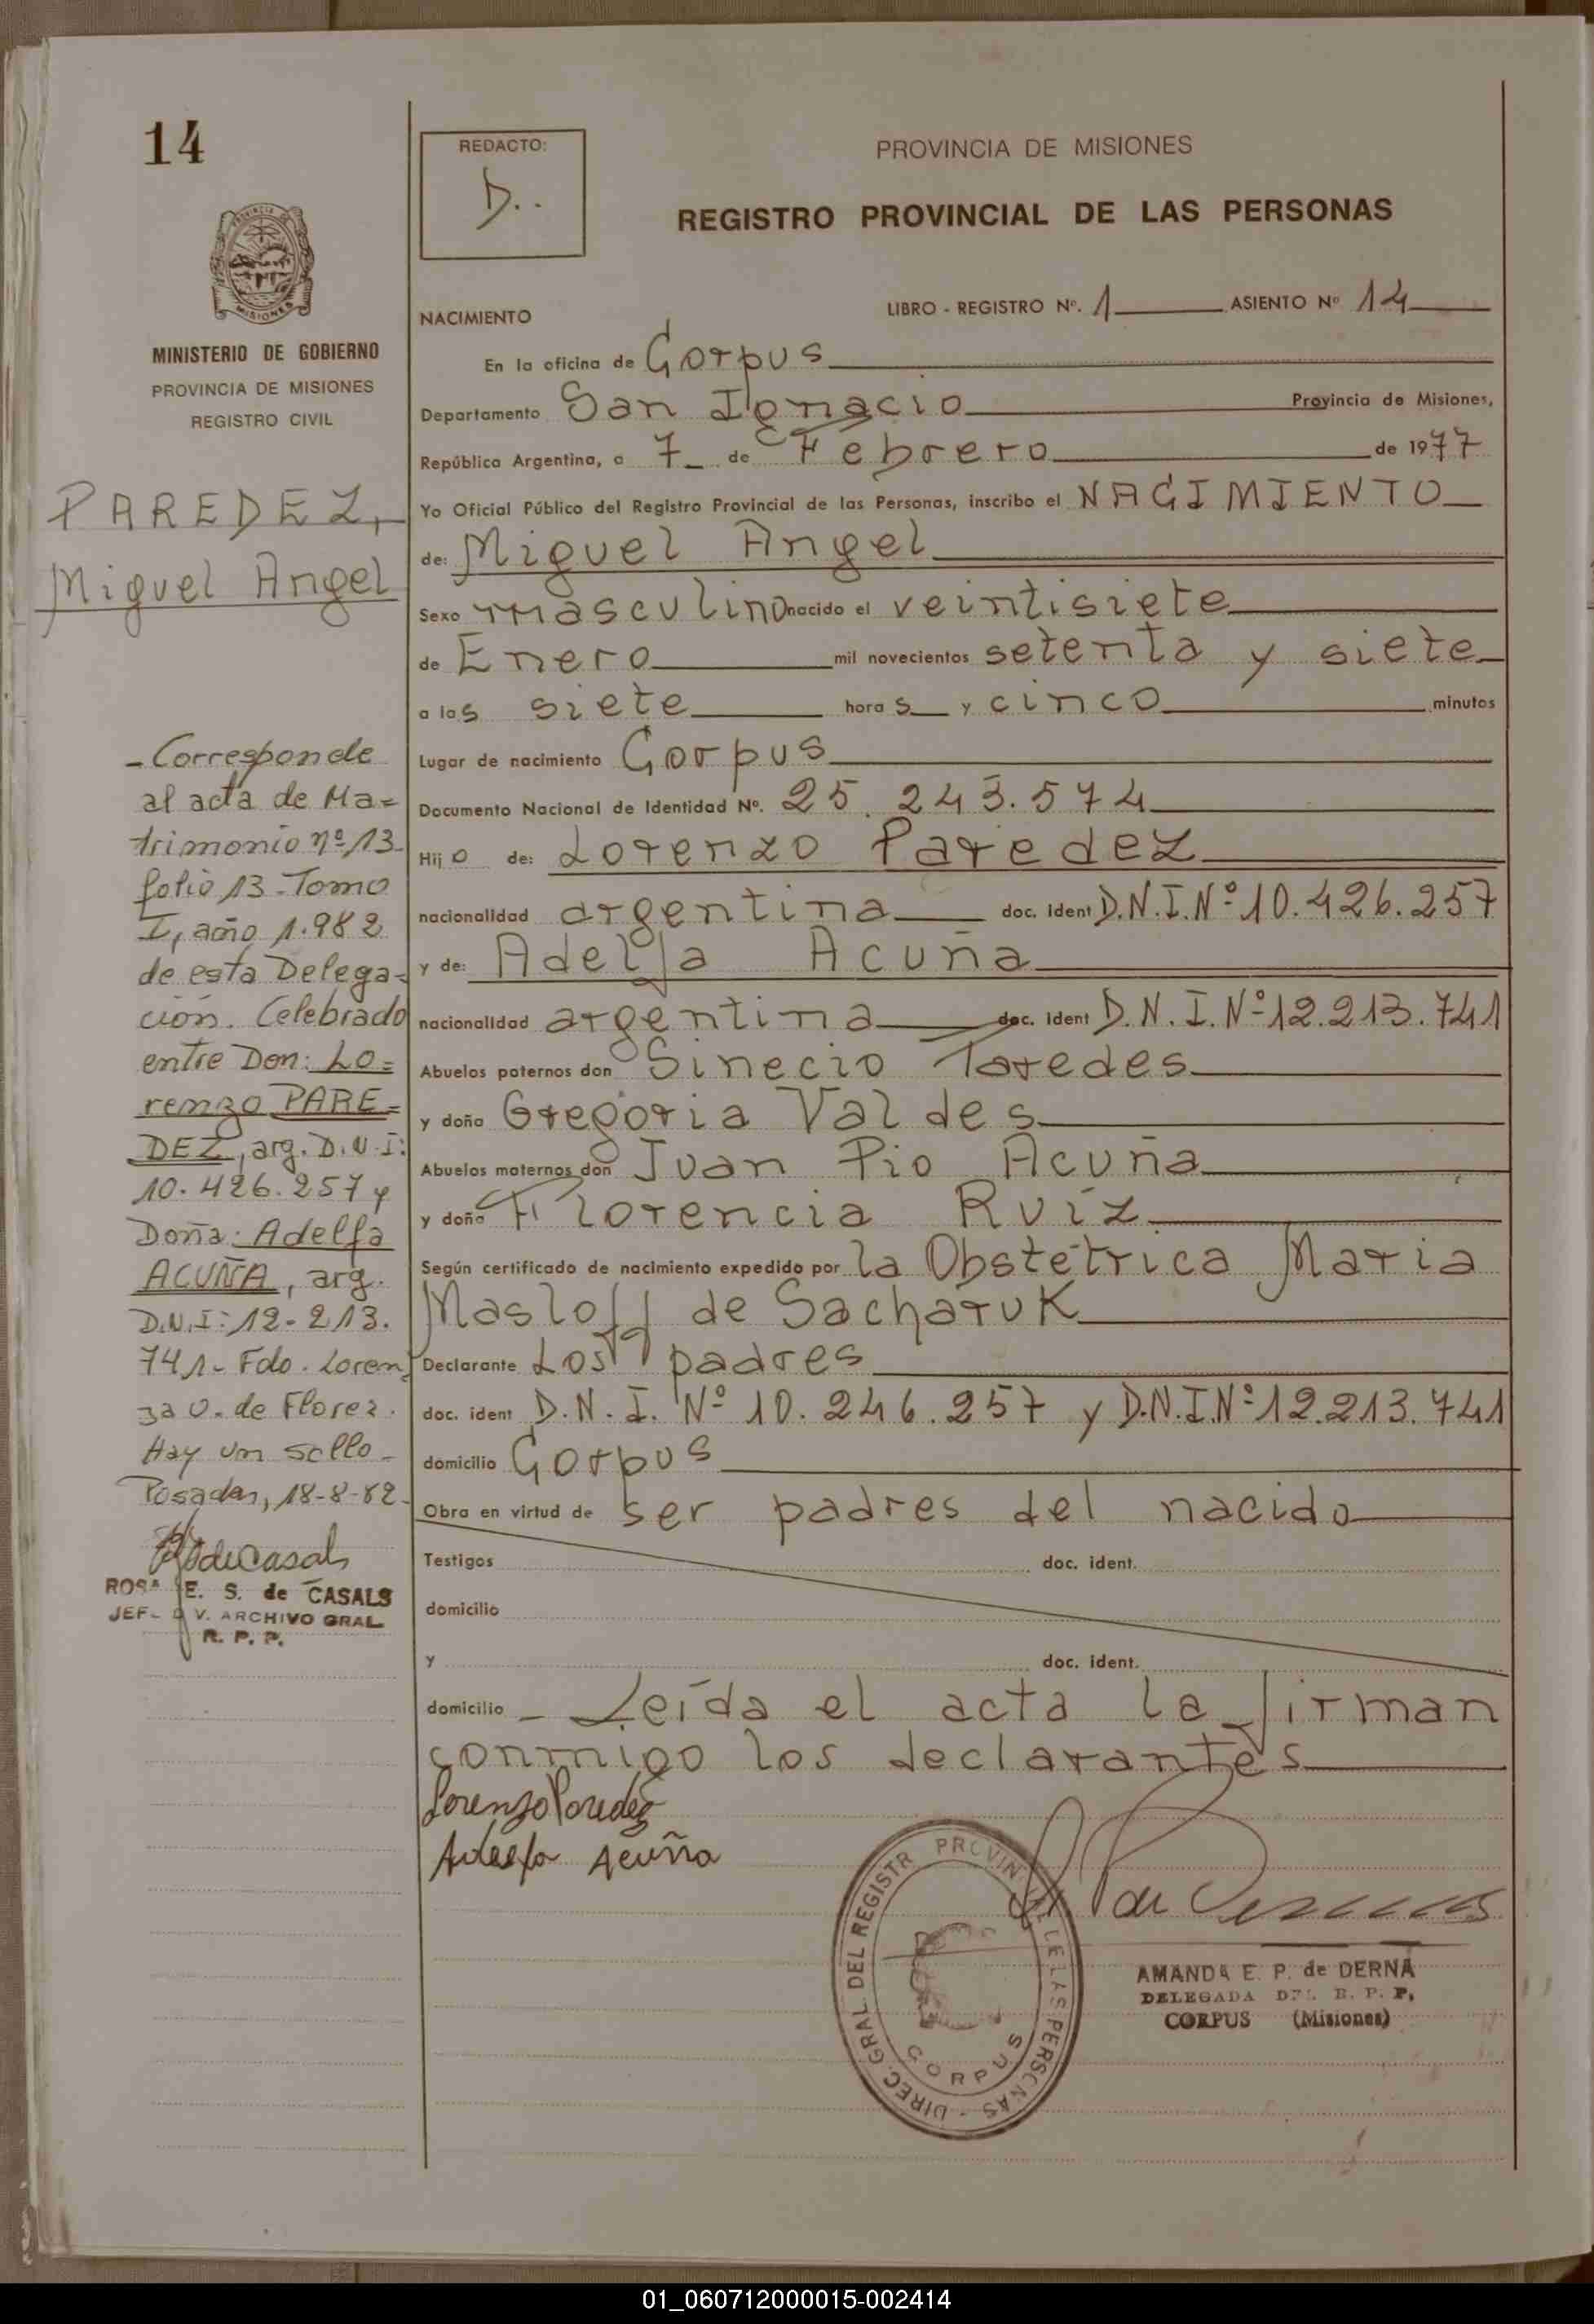 14
MINISTERIO DE GOBIERNO
PROVINCIA DE MISIONES
REGISTRO CIVIL
PAREDEZ,
Miguel Angel
- Corresponde
al acta de Ma=
trimonio nº 13-
folio 13 - Tomo
I, año 1.982
de esta Delega=
ción. Celebrado
entre Don: LO=
renzo PARE=
DEZ, arg. D.N.I:
10.426.257 y
Doña: Adelfa
ACUÑA, arg.
D.N.I: 12-213.
741- Fdo. Loren
za V. de Florez.
Hay un sello -
Posadas, 18-8-82-
ROSA E. S. de CASALS
JEF- D V. ARCHIVO GRAL
R. P. P.
REDACTO:
D..
PROVINCIA DE MISIONES
REGISTRO PROVINCIAL DE LAS PERSONAS
LIBRO - REGISTRO Nº. 1 ASIENTO Nº 14
NACIMIENTO
En la oficina de Corpus
Departamento San Ignacio Provincia de Misiones,
República Argentina, a 7 de Febrero de 1977
Yo Oficial Público del Registro Provincial de las Personas, inscribo el NACIMIENTO
de: Miguel Angel
Sexo masculino nacido el veintisiete
de Enero mil novecientos setenta y siete
a las siete horas y cinco minutos
Lugar de nacimiento Corpus
Documento Nacional de Identidad Nº. 25.243.574
Hijo de: Lorenzo Paredez
nacionalidad argentina doc. ident D.N.I.Nº 10.426.257
y de: Adelfa Acuña
nacionalidad argentina doc. ident D.N.I.Nº 12.213.741
Abuelos paternos don Sinecio Paredes
y doña Gregoria Valdes
Abuelos maternos don Juan Pio Acuña
y doña Florencia Ruíz
Según certificado de nacimiento expedido por la Obstétrica Maria
Masloff de Sacharuk
Declarante Los padres
doc. ident D.N.I. Nº 10.246.257 y D.N.I.Nº 12.213.741
domicilio Corpus
Obra en virtud de ser padres del nacido
Testigos doc. ident.
domicilio
y doc. ident.
domicilio - Leída el acta la firman
conmigo los declarantes
Lorenzo Paredez
Adelfa Acuña
DIREC. GRAL. DEL REGISTR PROVIN DE LAS PERSONAS -
CORPUS
AMANDA E. P. de DERNA
DELEGADA DEL R. P. P.
CORPUS (Misiones)
01_060712000015-002414